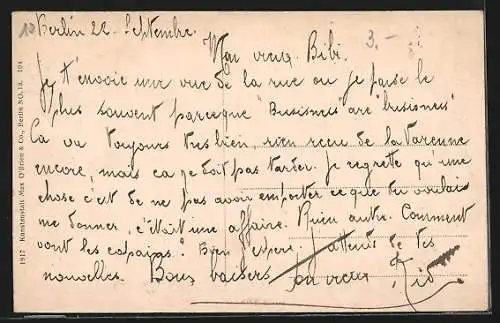 Berlin 22. Septembre.
3.-
Mon vieux Bibi.
Je t'envoie une vue de la rue ou je passe le
plus souvent parceque "Busisness are busisness"
Ca va toujours tres bien, rien recu de la Varenne
encore, mais ca ne doit pas tarder. Je regrette qu'une
chose c'est de ne pas avoir emporter ce que tu voulais
me donner, c'était une affaire. Rien autre. Comment
vont les copains? Bien j'espere. J'attends de tes
nouvelles. Bons baisers ton vieux
1917 Kunstanstalt Max O'Brien & Co., Berlin NO.18. 104